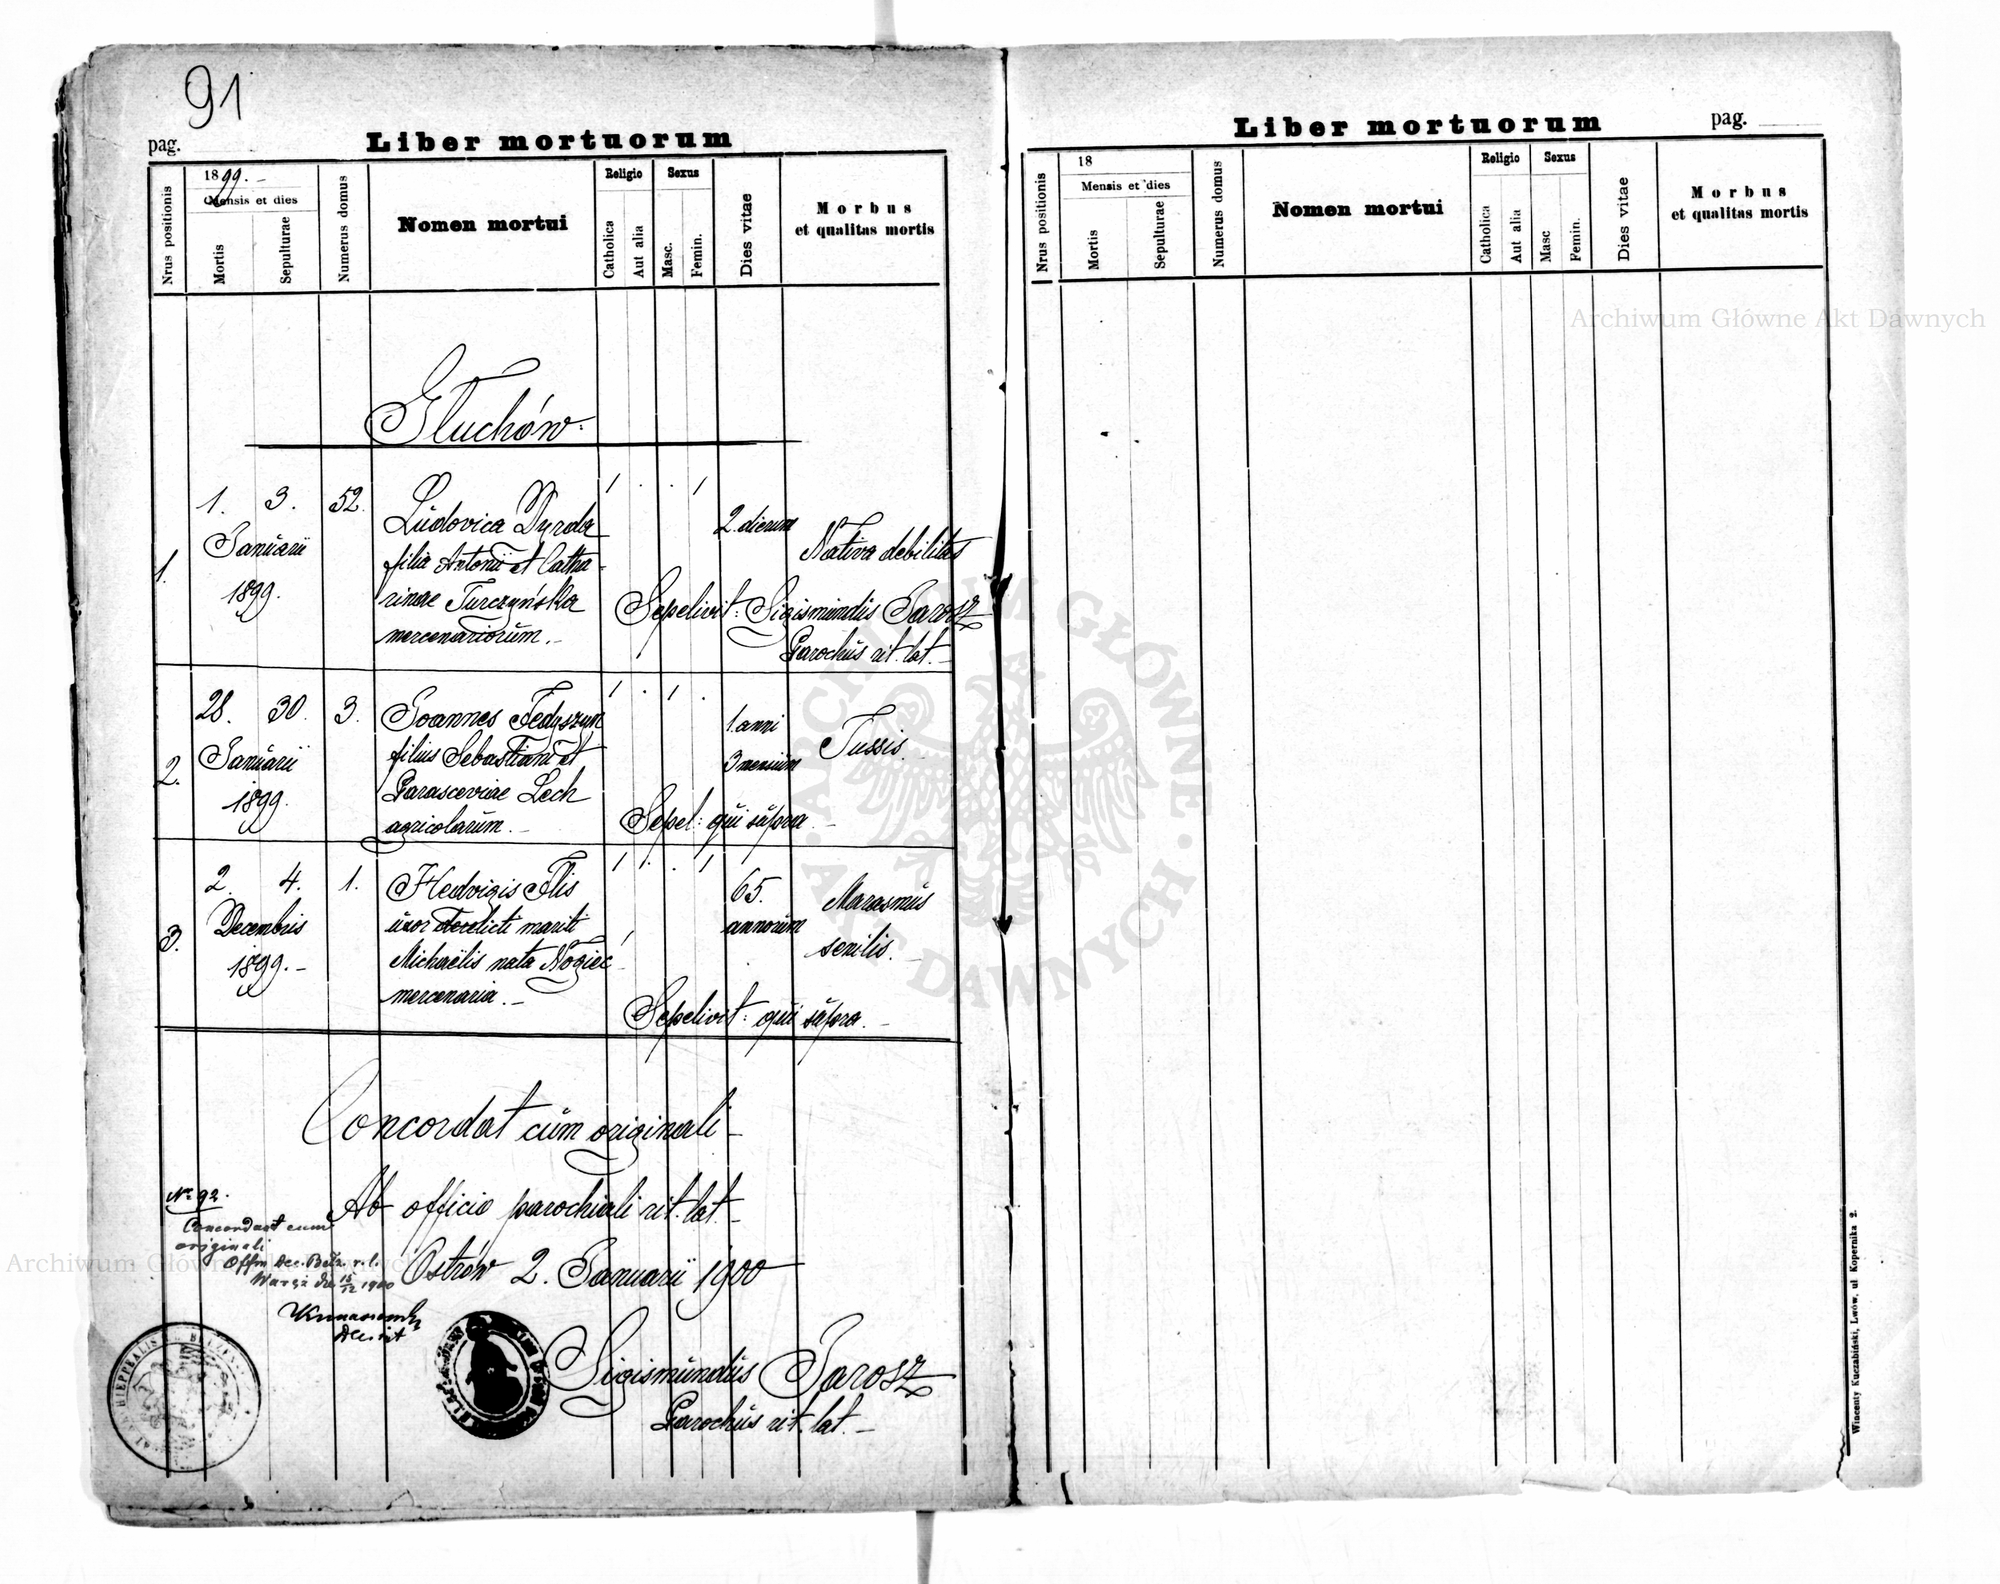 91
pag.
Liber mortuorum
Nrus positionis
1899.-
Mensis et dies
Mortis
Sepulturae
Numerus domus
Nomen mortui
Religio
Catholica
Aut alia
Sexus
Masc.
Femin.
Dies vitae
Morbus
et qualitas mortis
Głuchów.
1.
1. 3.
Januarii
1899.
52.
Ludovica Dyrda
filia Antonii et Catha-
rinae Turczyńska
mercenariorum.-
1 . . 1
2. dierum
Nativa debilitas
Sepelivit: Sigismundus Jarosz
Parochus rit. lat.-
2.
28. 30.
Januarii
1899.
3.
Joannes Fedyszyn
filius Sebastiani et
Parasceviae Lech
agricolarum.-
1 . 1 .
1. anni
3 mensium
Tussis.
Sepel: qui supra.-
3.
2. 4.
Decembris
1899.-
1.
Hedvigis Flis
uxor derelicti mariti
Michaëlis nata
mercenaria.-
1 . . 1
65.
annorum
Marasmus
senilis.-
Sepelivit: qui supra.-
Concordat cum originali-
Ab officio parochiali rit. lat.-
Ostrów 2. Januarii 1900
Sigismundus Jarosz
Parochus rit. lat.-
No 92.
Concordat cum
originali
Liber mortuorum
pag.
Nrus positionis
18
Mensis et dies
Mortis
Sepulturae
Numerus domus
Nomen mortui
Religio
Catholica
Aut alia
Sexus
Masc
Femin.
Dies vitae
Morbus
et qualitas mortis
Wincenty Kuczabiński, Lwów, ul. Kopernika 2.
Archiwum Główne Akt Dawnych
Archiwum Główne Akt Dawnych
ARCHIWUM GŁÓWNE · AKT DAWNYCH ·